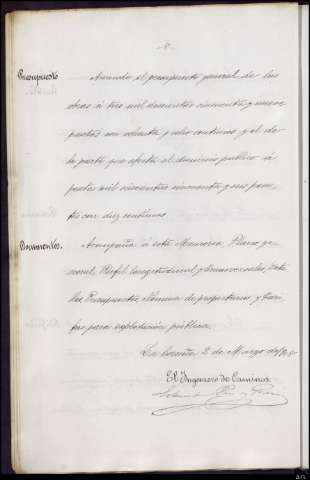 -8-
Presupuesto Asciende el presupuesto general de las
obras á tres mil doscientas cincuenta y nueve
pesetas con ochenta y ocho centimos y el de
la parte que afecta al dominio publico á
mil cincuenta y seis pese-
tas con diez centimos
Documentos. Acompaña á esta Memoria, Plano ge-
neral, Perfil longitudinal y transversales, Deta-
lles, Presupuestos, Nómina de propietarios y Tari-
fas para esplotación pública.
La Coruña 2 de Marzo de
El Ingeniero de Caminos